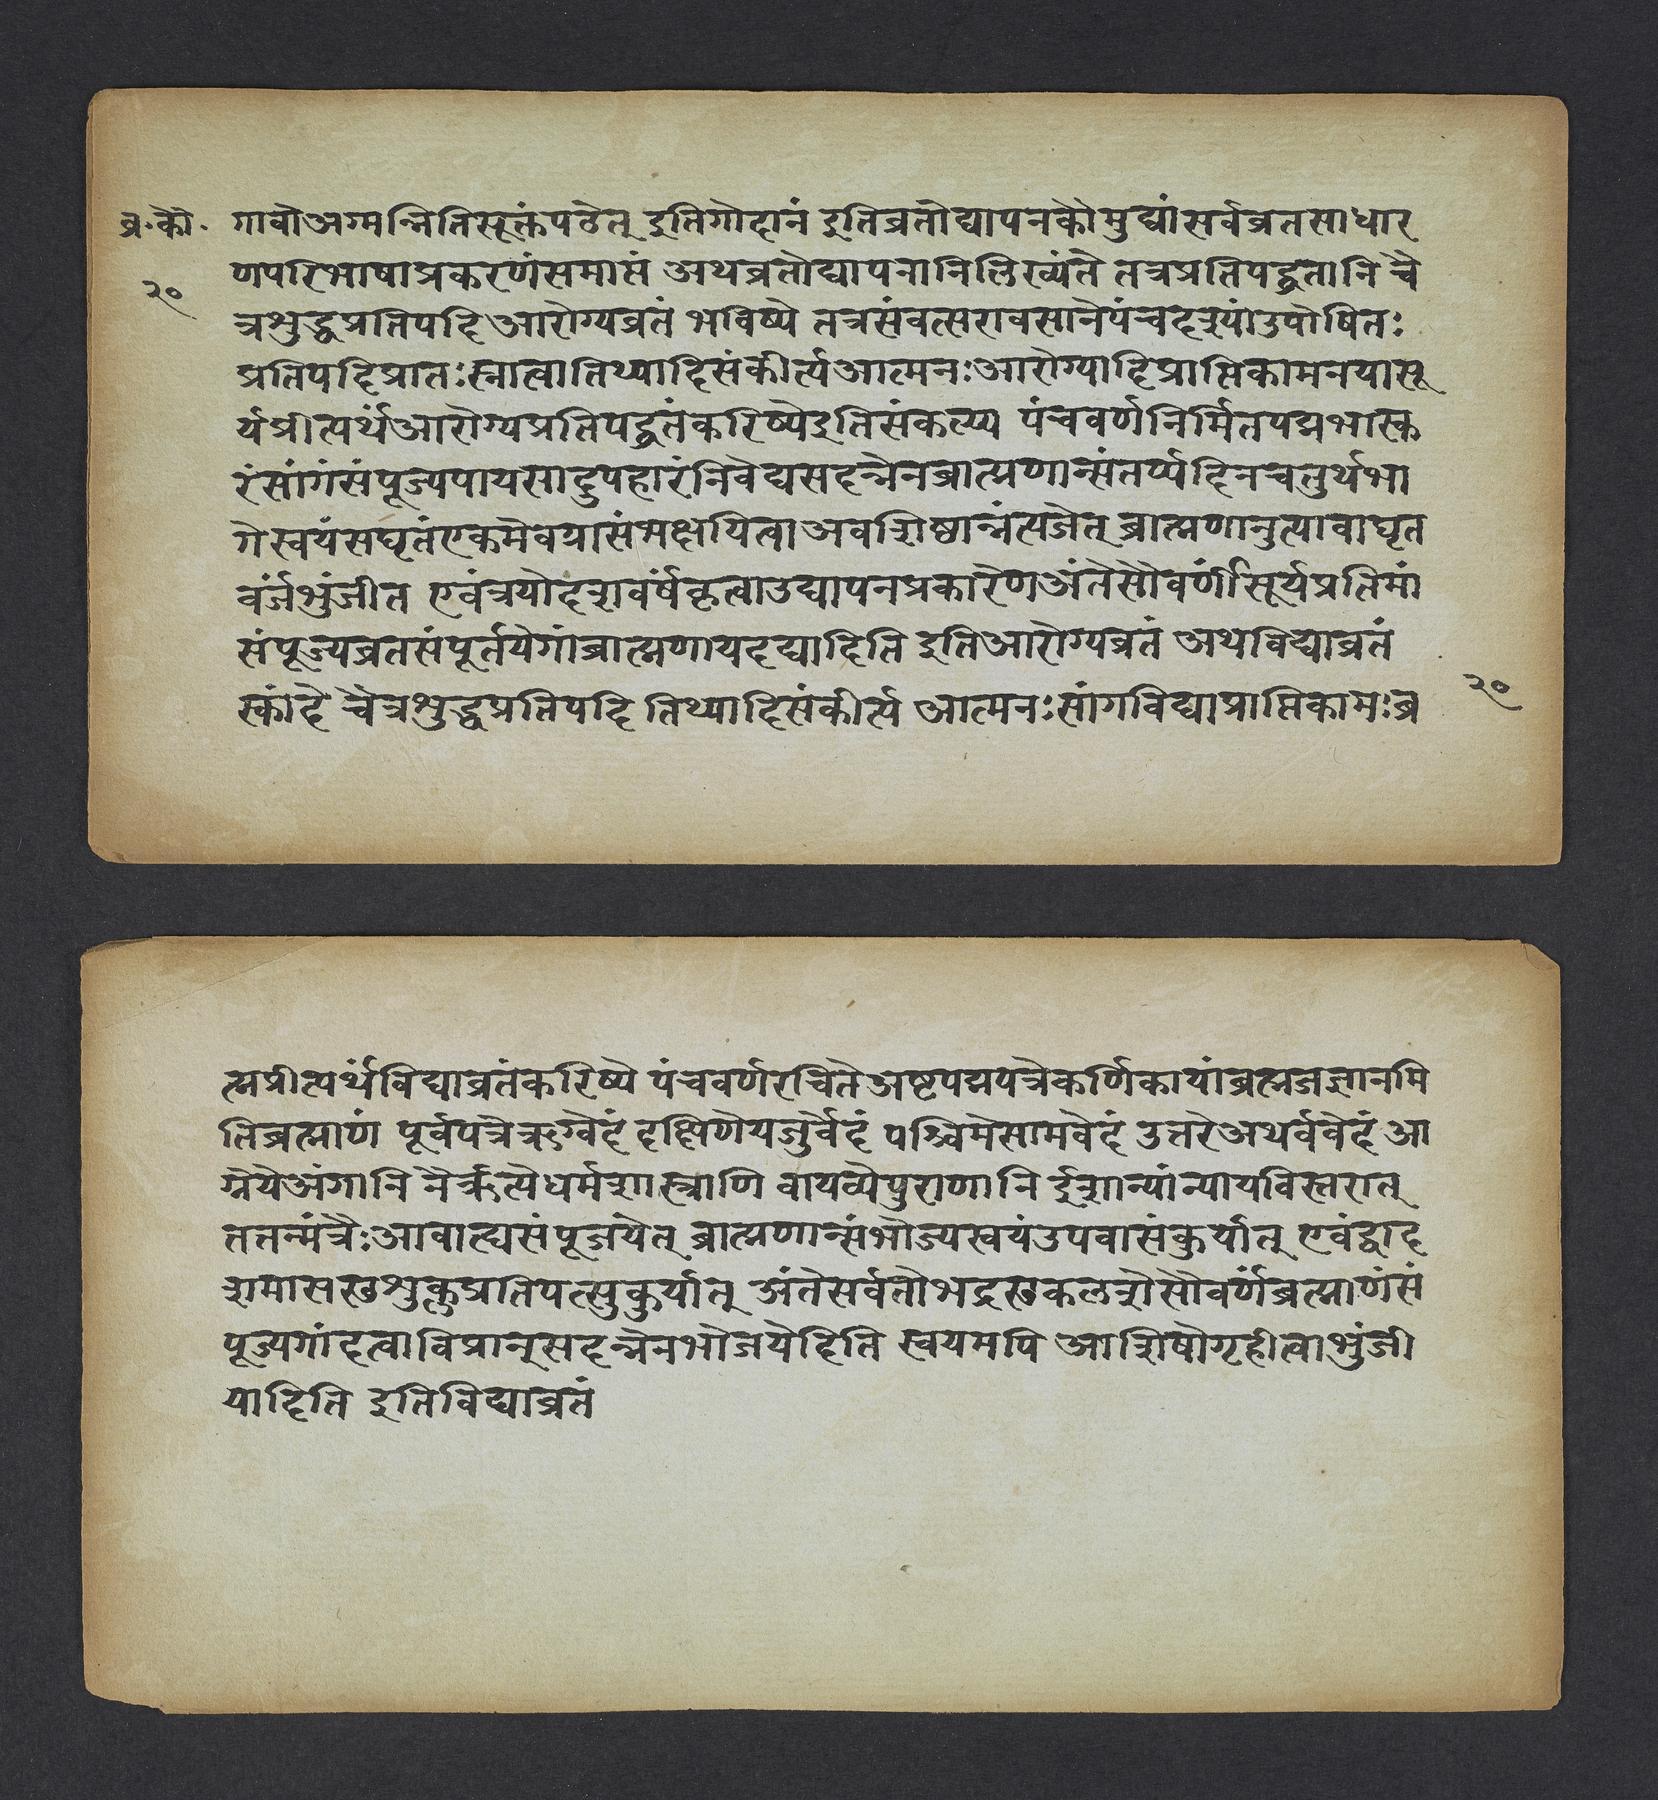 व्र.कौ. गावोअग्मन्नितिसूक्तंपठेत् इतिगोदानं इतिव्रतोद्यापनकौमुद्यांसर्वव्रतसाधार
२० णपरिभाषाप्रकरणंसमाप्तं अथव्रतोद्यापनानिलिख्यंते तत्रप्रतिपद्व्रतानि चै
त्रशुद्धप्रतिपदि आरोग्यव्रतं भविष्ये तत्रसंवत्सरावसानेपंचदश्यांउपोषितः
प्रतिपदिप्रातःस्नात्वातिथ्यादिसंकीर्त्यआत्मनःआरोग्यादिप्राप्तिकामनयासू
र्यप्रीत्यर्थंआरोग्यप्रतिपद्व्रतंकरिष्येइतिसंकल्प्य पंचवर्णनिर्मितपद्मभास्क
रंसांगंसंपूज्यपायसाद्युपहारंनिवेद्यसदन्नेनब्राह्मणान्संतर्प्यदिनचतुर्थभा
गेस्वयंसघृतंएकमेवग्रासंभक्षयित्वाअवशिष्ठान्नंत्यजेत् ब्राह्मणानुज्ञयावाघृत
वर्जंभुंजीत एवंत्रयोदशवर्षंकृत्वाउद्यापनप्रकारेणअंतेसौवर्णींसूर्यप्रतिमां
संपूज्यव्रतसंपूर्तयेगांब्राह्मणायदद्यादिति इतिआरोग्यव्रतं अथविद्याव्रतं
स्कांदे चैत्रशुद्धप्रतिपदि तिथ्यादिसंकीर्त्य आत्मनःसांगविद्याप्राप्तिकामःब्र २०
ह्मप्रीत्यर्थंविद्याव्रतंकरिष्ये पंचवर्णरचितेअष्टपद्मपत्रेकर्णिकायांब्रह्मजज्ञानमि
तिब्रह्माणं पूर्वपत्रेऋग्वेदं दक्षिणेयजुर्वेदं पश्चिमेसामवेदं उत्तरेअथर्ववेदं आ
ग्नेयेअंगानि नैर्ऋत्येधर्मशास्त्राणि वायव्येपुराणानि ईशान्यांन्यायविस्तरात्
तत्तन्मंत्रैःआवाह्यसंपूजयेत् ब्राह्मणान्संभोज्यस्वयंउपवासंकुर्यात् एवंद्वाद
शमासस्तशुक्लप्रतिपत्सुकुर्यात् अंतेसर्वतोभद्रस्तकलशेसौवर्णंब्रह्माणंसं
पूज्यगांदत्वाविप्रान्सदन्नेनभोजयेदिति स्वयमपि आशिषोगृहीत्वाभुंजी
यादिति इतिविद्याव्रतं